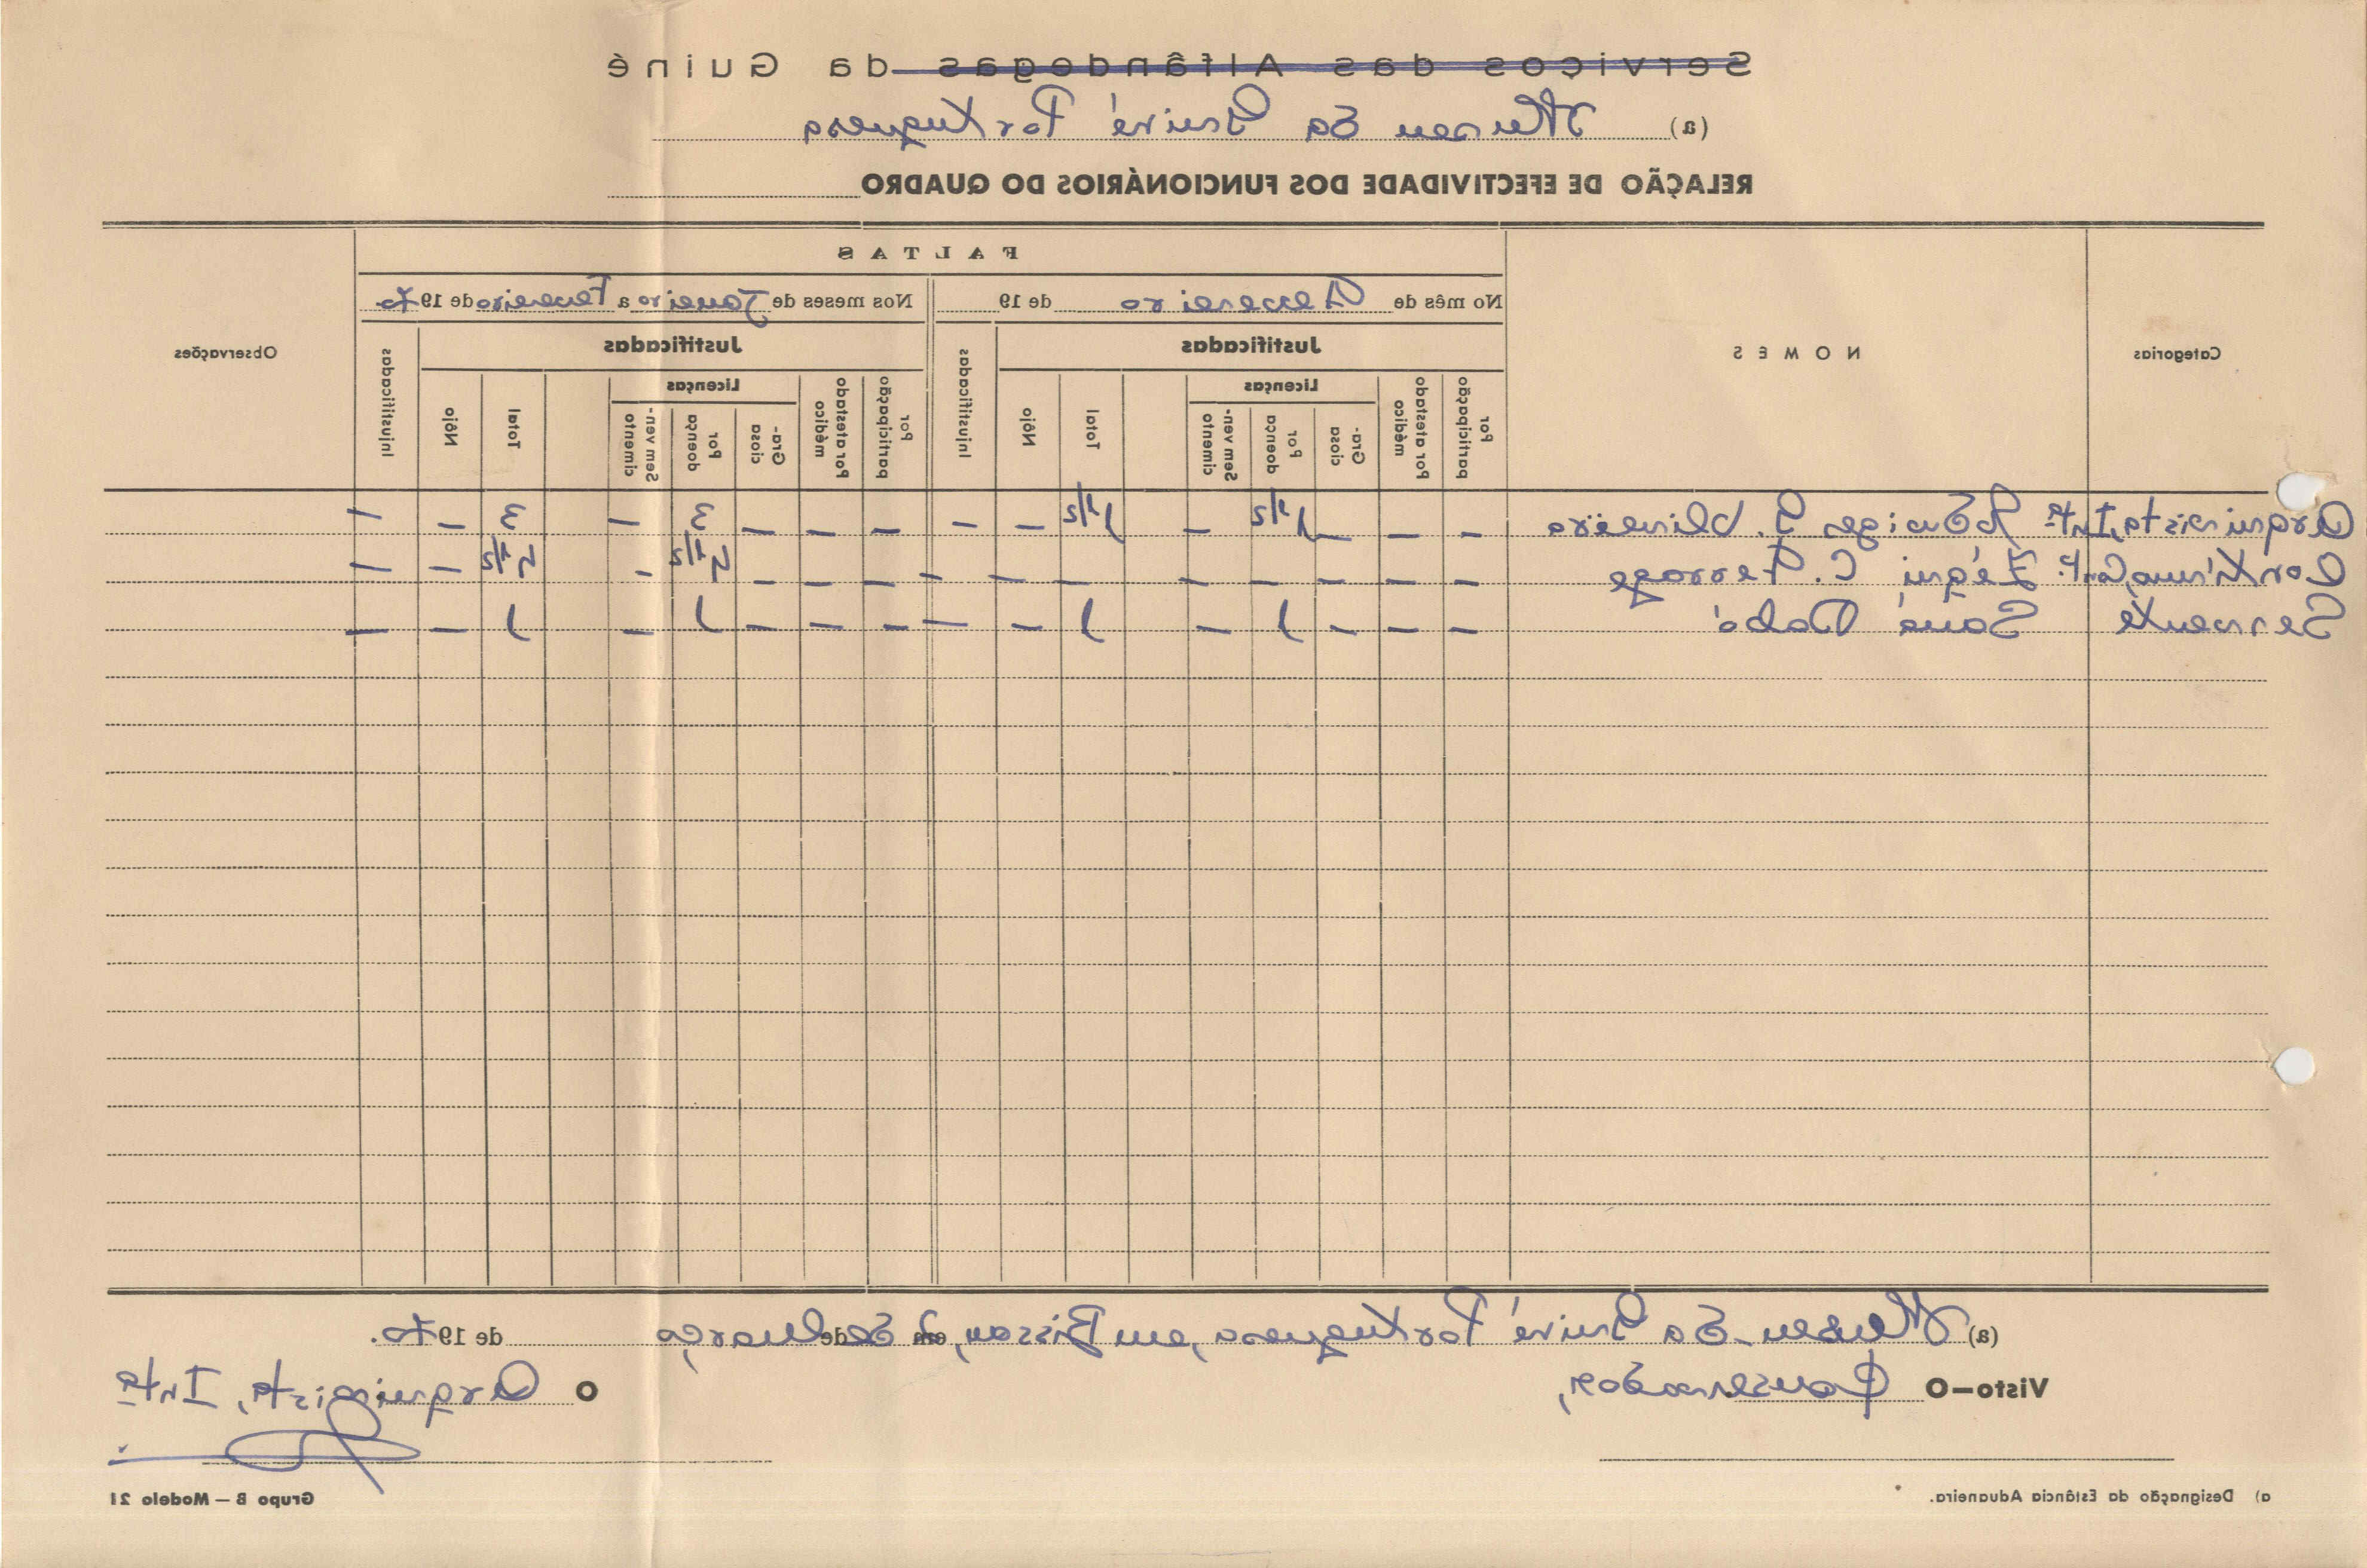 Serviços das Alfândegas da Guiné
(a) Museu da Guiné Portuguesa
RELAÇÃO DE EFECTIVIDADE DOS FUNCIONÁRIOS DO QUADRO
Categorias
NOMES
FALTAS
Observações
No mês de Fevereiro de 19
Nos meses de Janeiro a Fevereiro de 1970
Justificadas
Injustificadas
Justificadas
Injustificadas
Por participação
Por atestado médico
Licenças
Gra-ciosa
Por doença
Sem ven-cimento
Total
Nôjo
Por participação
Por atestado médico
Licenças
Gra-ciosa
Por doença
Sem ven-cimento
Total
Nôjo
Arquivista, Intª — — — 1 1/2 — 1 1/2 — — — — — 3 — 3 — —
Contínuo, — — — — — — — — — — — 4 1/2 — 4 1/2 — —
Servente Saná Dabó — — — 1 — 1 — — — — — 1 — 1 — —
(a) Museu da Guiné Portuguesa, em Bissau, em de Março de 1970.
Visto—O
O Arquivista, Intª
a) Designação da Estância Aduaneira.
Grupo B — Modelo 21